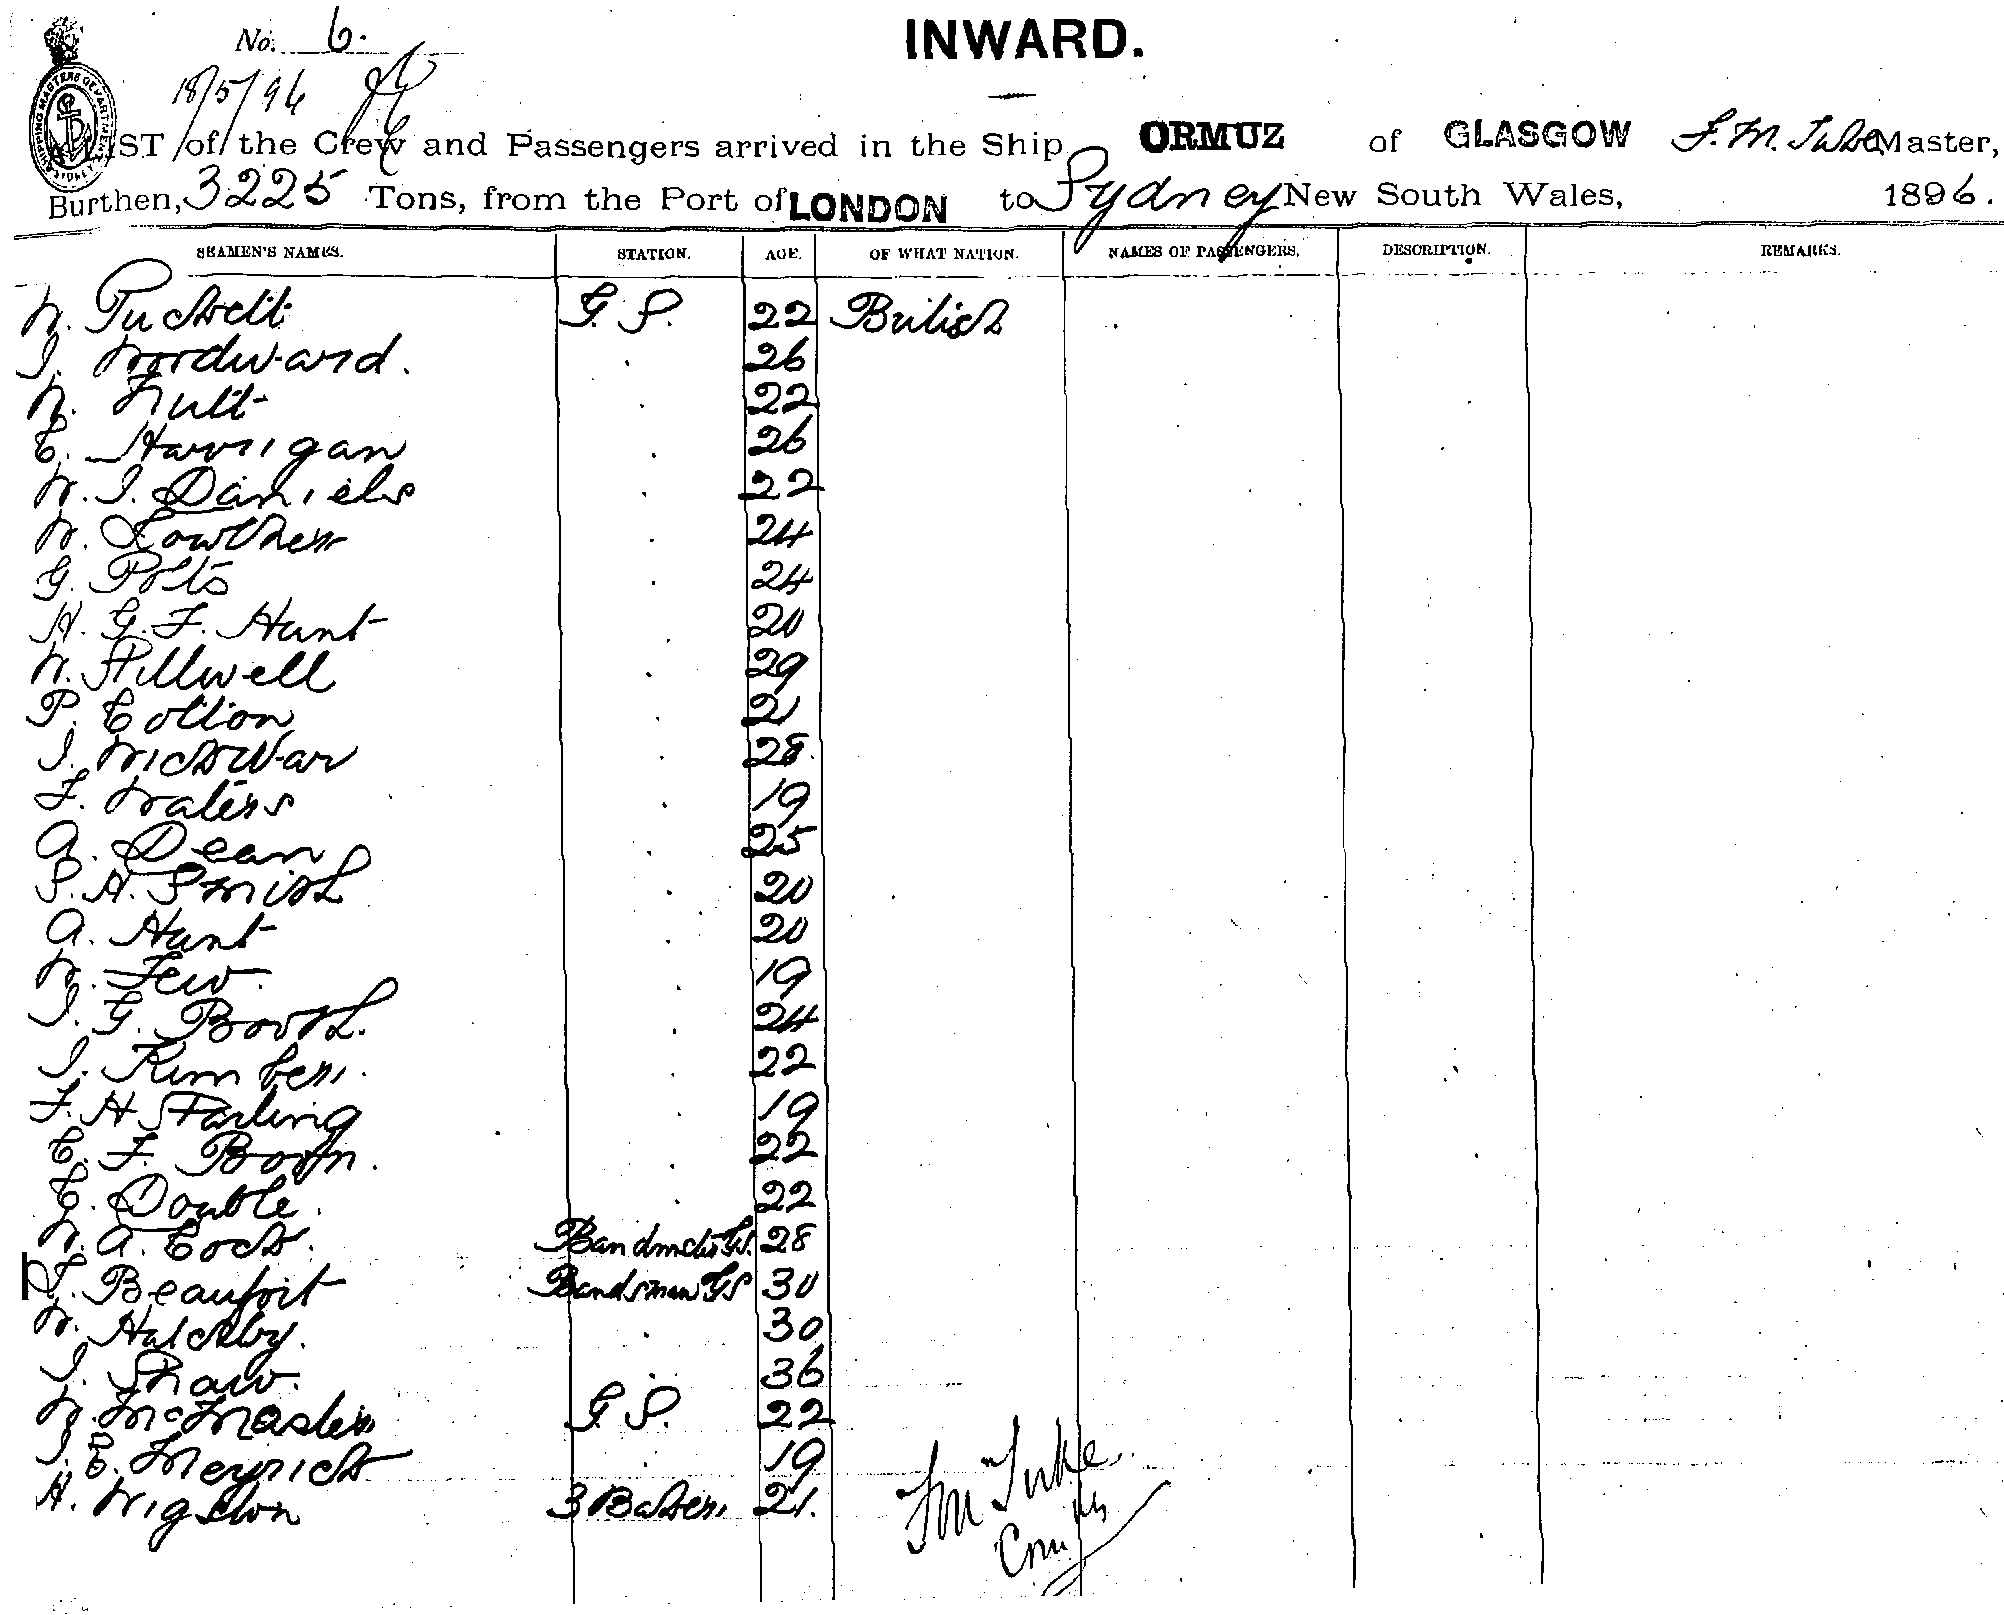 No. 6.
INWARD.
18/5/96
LIST of the Crew and Passengers arrived in the Ship ORMUZ of GLASGOW F. M. Tuke Master,
Burthen, 3225 Tons, from the Port of LONDON to Sydney New South Wales, 1896.
SEAMEN'S NAMES. STATION. AGE. OF WHAT NATION. NAMES OF PASSENGERS. DESCRIPTION. REMARKS.
W. Puckett G. S. 22 British
J. Woodward. 26
W. Nutt 22
C. Harrigan 26
W. J. Daniels 22
W. Lowther 24
G. Potts 24
H. G. F. Hunt 20
W. Stillwell 29
P. Cotton 21
J. 28
F. Waters 19
A. Dean 25
S. H. Smith 20
A. Hunt 20
W. Few. 19
J. G. Booth. 24
J. Kimber. 22
F. H Starling 19
C. F. Born. 22
C. Double. 22
W. A. Cock. 28
Beaufoit Bandsman GS 30
W. 30
J. Shaw. 36
W. McMaster G. S. 22
J. C. Meyrick 19
H. Wigston 3 Baker 21.
FM Tuke